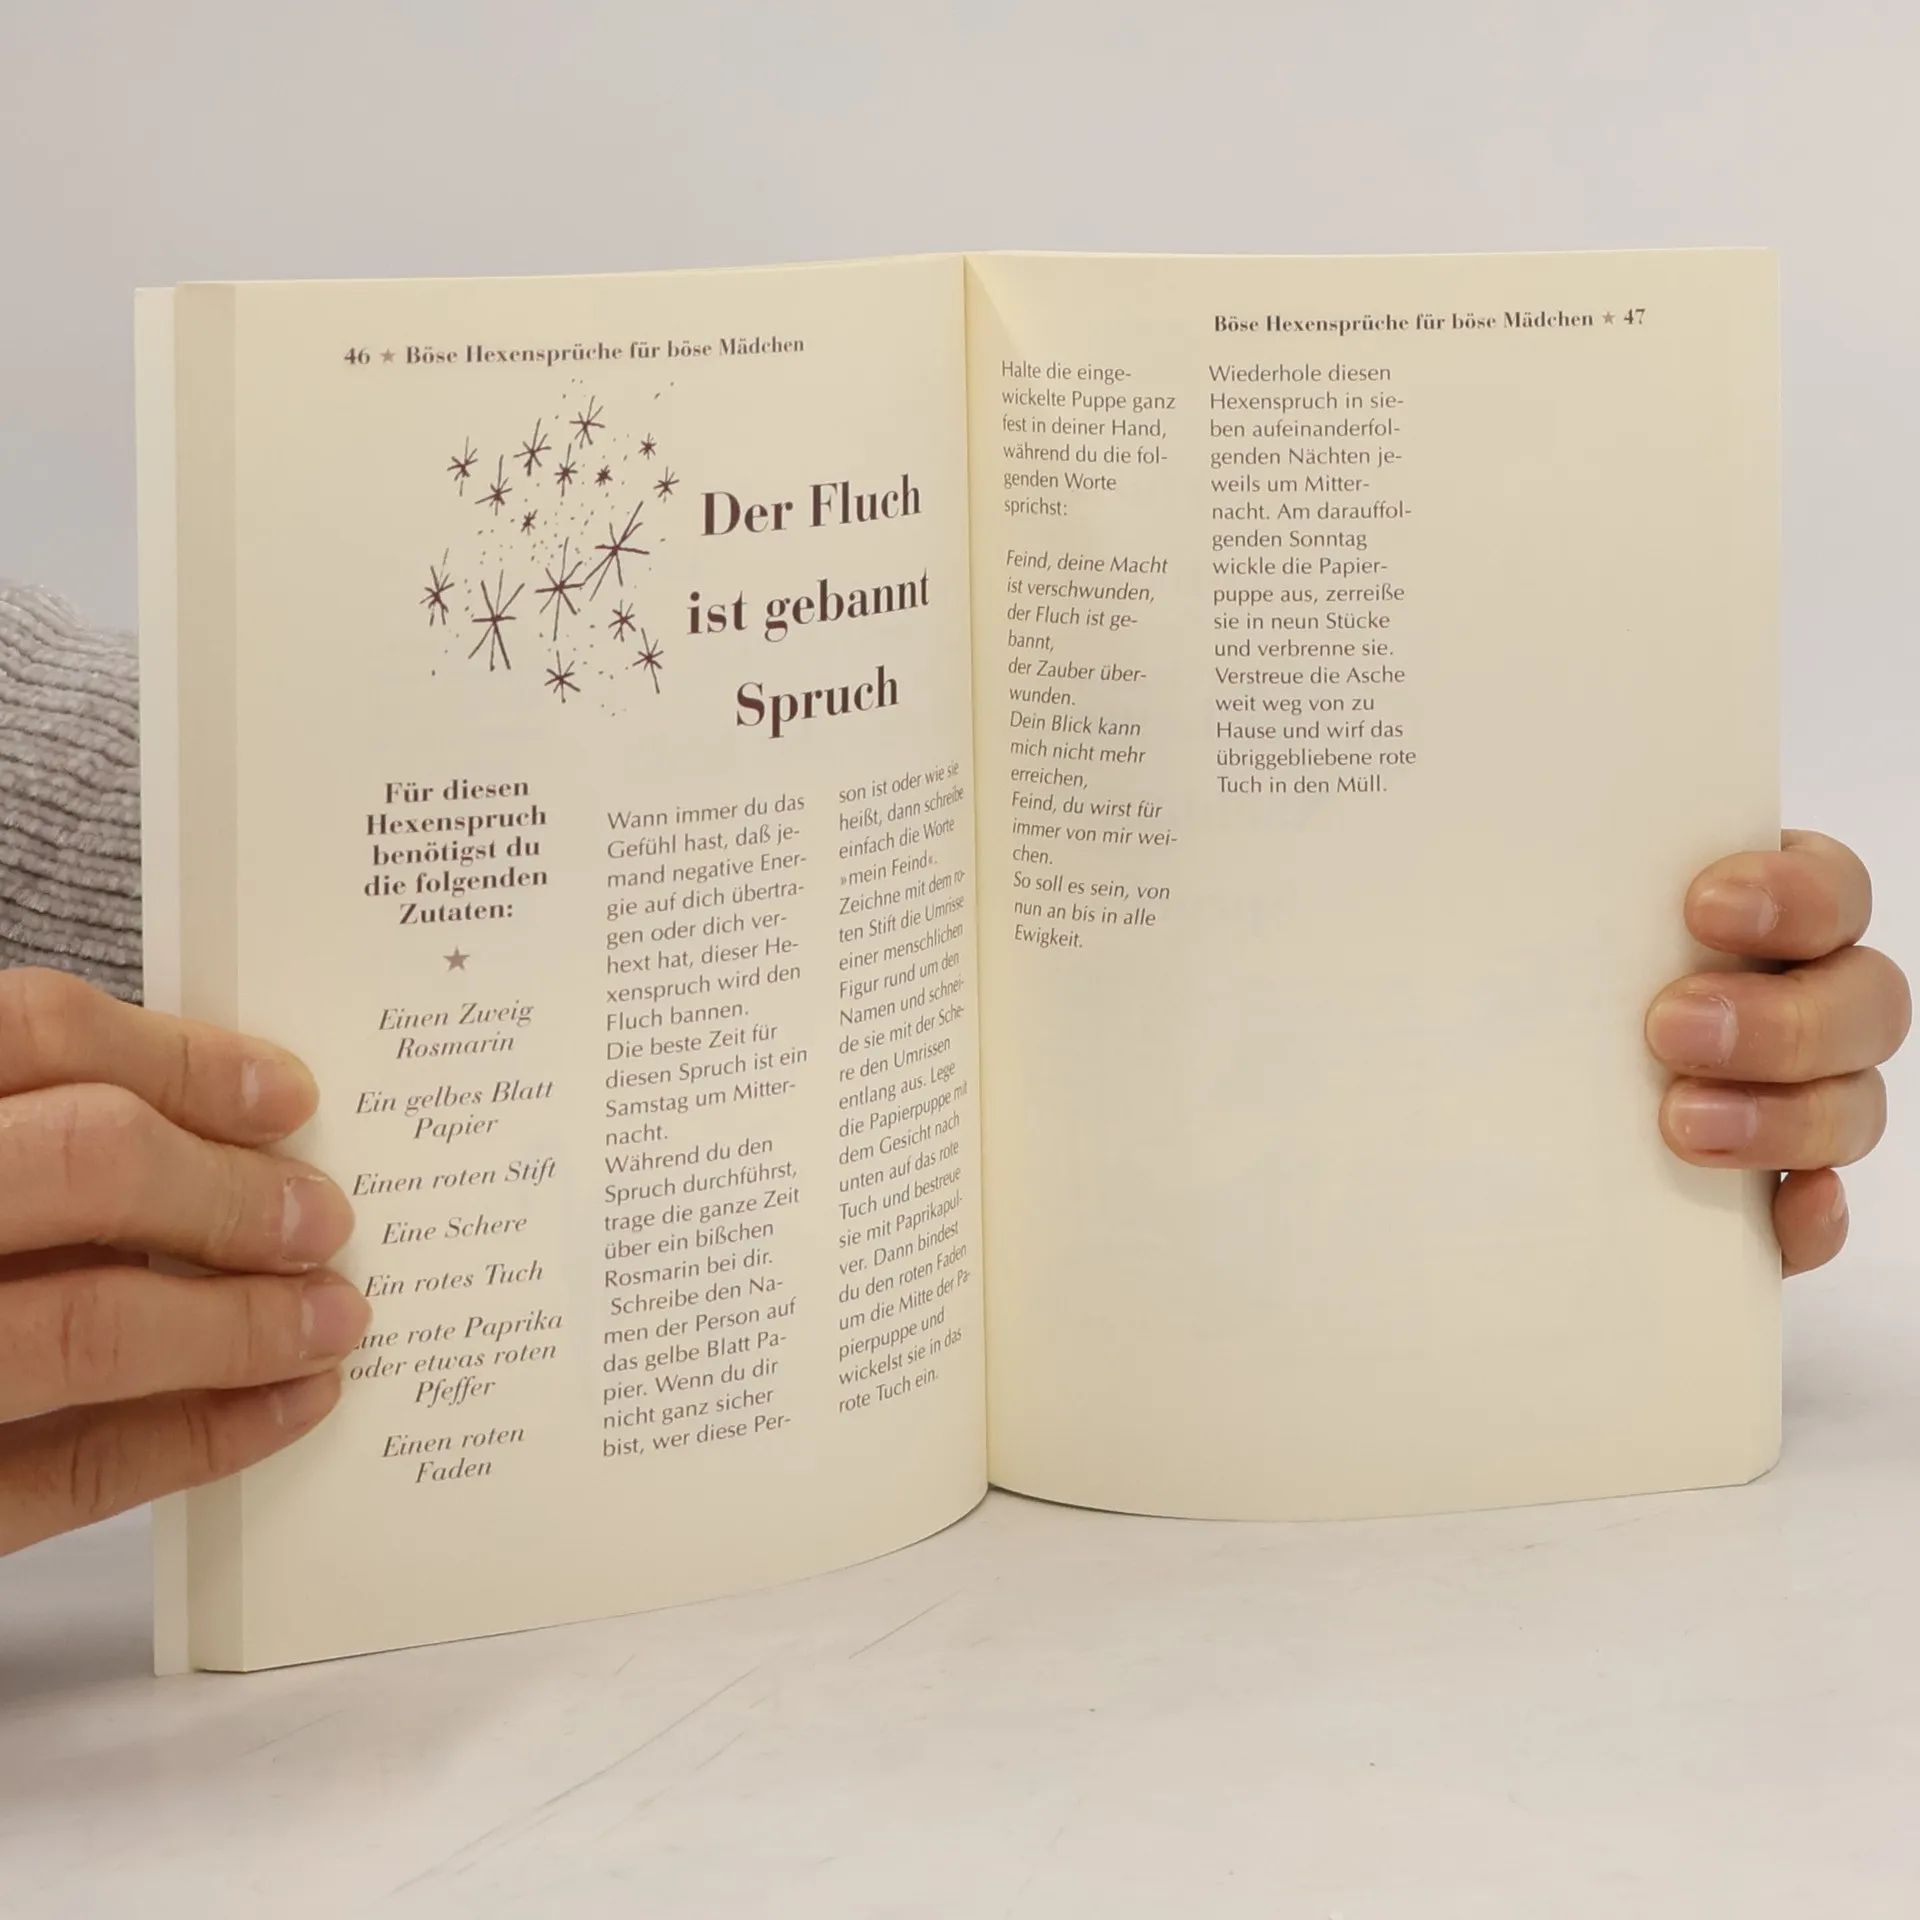 46 ★ Böse Hexensprüche für böse Mädchen
Der Fluch
ist gebannt
Spruch
Für diesen
Hexenspruch
benötigst du
die folgenden
Zutaten:
★
Einen Zweig
Rosmarin
Ein gelbes Blatt
Papier
Einen roten Stift
Eine Schere
Ein rotes Tuch
ine rote Paprika
oder etwas roten
Pfeffer
Einen roten
Faden
Wann immer du das
Gefühl hast, daß je-
mand negative Ener-
gie auf dich übertra-
gen oder dich ver-
hext hat, dieser He-
xenspruch wird den
Fluch bannen.
Die beste Zeit für
diesen Spruch ist ein
Samstag um Mitter-
nacht.
Während du den
Spruch durchführst,
trage die ganze Zeit
über ein bißchen
Rosmarin bei dir.
Schreibe den Na-
men der Person auf
das gelbe Blatt Pa-
pier. Wenn du dir
nicht ganz sicher
bist, wer diese Per-
son ist oder wie sie
heißt, dann schreibe
einfach die Worte
»mein Feind«.
Zeichne mit dem ro-
ten Stift die Umrisse
einer menschlichen
Figur rund um den
Namen und schnei-
de sie mit der Sche-
re den Umrissen
entlang aus. Lege
die Papierpuppe mit
dem Gesicht nach
unten auf das rote
Tuch und bestreue
sie mit Paprikapul-
ver. Dann bindest
du den roten Faden
um die Mitte der Pa-
pierpuppe und
wickelst sie in das
rote Tuch ein.
Böse Hexensprüche für böse Mädchen ★ 47
Halte die einge-
wickelte Puppe ganz
fest in deiner Hand,
während du die fol-
genden Worte
sprichst:
Feind, deine Macht
ist verschwunden,
der Fluch ist ge-
bannt,
der Zauber über-
wunden.
Dein Blick kann
mich nicht mehr
erreichen,
Feind, du wirst für
immer von mir wei-
chen.
So soll es sein, von
nun an bis in alle
Ewigkeit.
Wiederhole diesen
Hexenspruch in sie-
ben aufeinanderfol-
genden Nächten je-
weils um Mitter-
nacht. Am darauffol-
genden Sonntag
wickle die Papier-
puppe aus, zerreiße
sie in neun Stücke
und verbrenne sie.
Verstreue die Asche
weit weg von zu
Hause und wirf das
übriggebliebene rote
Tuch in den Müll.